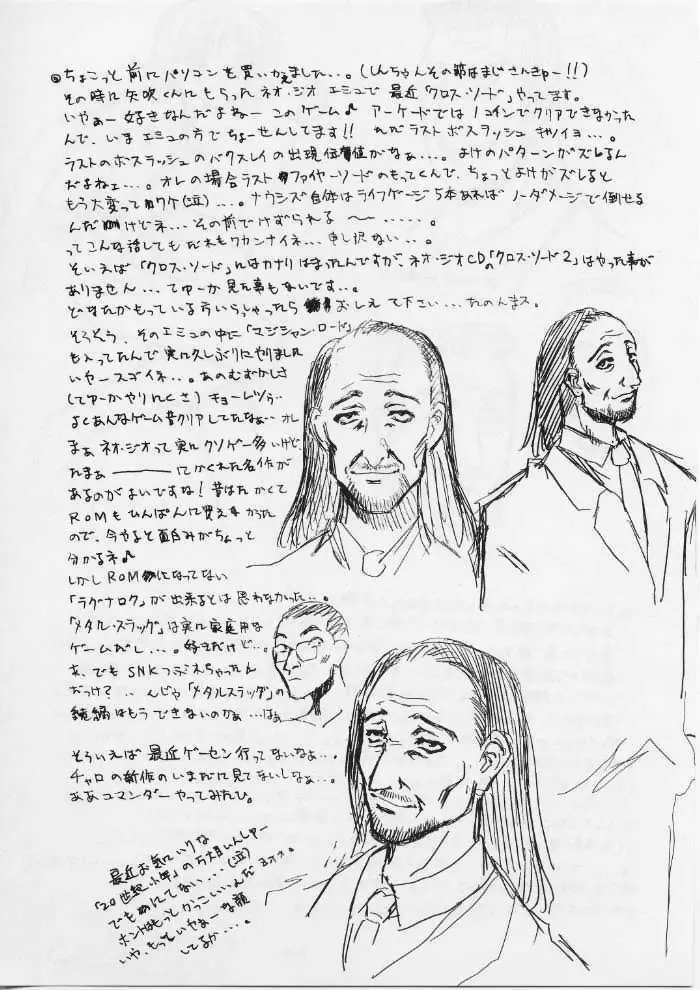 ◎ちょこっと前にパソコンを買いかえました…。(しんちゃんその節はまじさんきゅー!!)
その時に矢吹くんにもらったネオ・ジオエミュで最近「クロス・ソード」やってます。
いやぁー好きなんだよねーこのゲーム♪ アーケードでは1コインでクリアできなかった
んで、いまエミュの方でちょーせんしてます!! ただラストボスラッシュキツイヨ…。
ラストのボスラッシュのバクスレイの出現位置がなぁ…。よけのパターンがズレるん
だよねェ…。オレの場合ラストファイヤーソードのもってくんで、ちょっとよけがズレると
もう大変ってワケ(泣)…。ナウシズ自体はライフゲージ5本あればノーダメージで倒せる
んだけどネ…その前でけずられる〜……。
ってこんな話してもだれもワカンナイネ…申し訳ない…。
そいえば「クロス・ソード」にはカナリはまったんですが、ネオ・ジオCDの「クロス・ソード2」はやった事が
ありません…てゆーか見た事もないです…。
どなたかもっている方いらっしゃったらおしえて下さい…たのんます。
そうそう、そのエミュの中に「マジシャン・ロード」
も入ってたんで実に久しぶりにやりました
いやースゴイネ…。あのむずかしさ
(てゆーかやりにくさ)キョーレツぅ…
よくあんなゲーム昔クリアしてたなぁ…オレ
まぁネオ・ジオって実にクソゲー多いけど
たまぁ――――にかくれた名作が
あるのがよいですね!昔はたかくて
ROMもひんぱんに買えなかった
ので、今やると面白みがちょっと
分かるネ♪
しかしROMになってない
「ラグナロク」が出来るとは思わなかった…。
「メタル・スラッグ」は実に家庭用な
ゲームだし…。好きだけど…。
あ、でもSNKつぶれちゃったん
だっけ?‥んじゃ「メタルスラッグ」の
続編はもうできないのかぁ…はぁ
そういえば最近ゲーセン行ってないなぁ…。
チャロの新作のいまだに見てないしなぁ…。
ああコマンダーやってみたひ。
最近お気にいりな
「20世紀少年」の万丈目いんしゅー
でもにてない…(泣)
ホントはもっとかっこいいんだヨォォ。
いや、もっといやぁーな顔
してるか…。